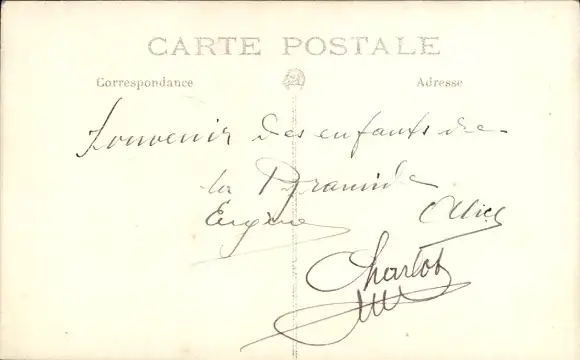 CARTE POSTALE
Correspondance Adresse
Souvenir des enfants de
la Pyramide
Eugène Alice
Charlot